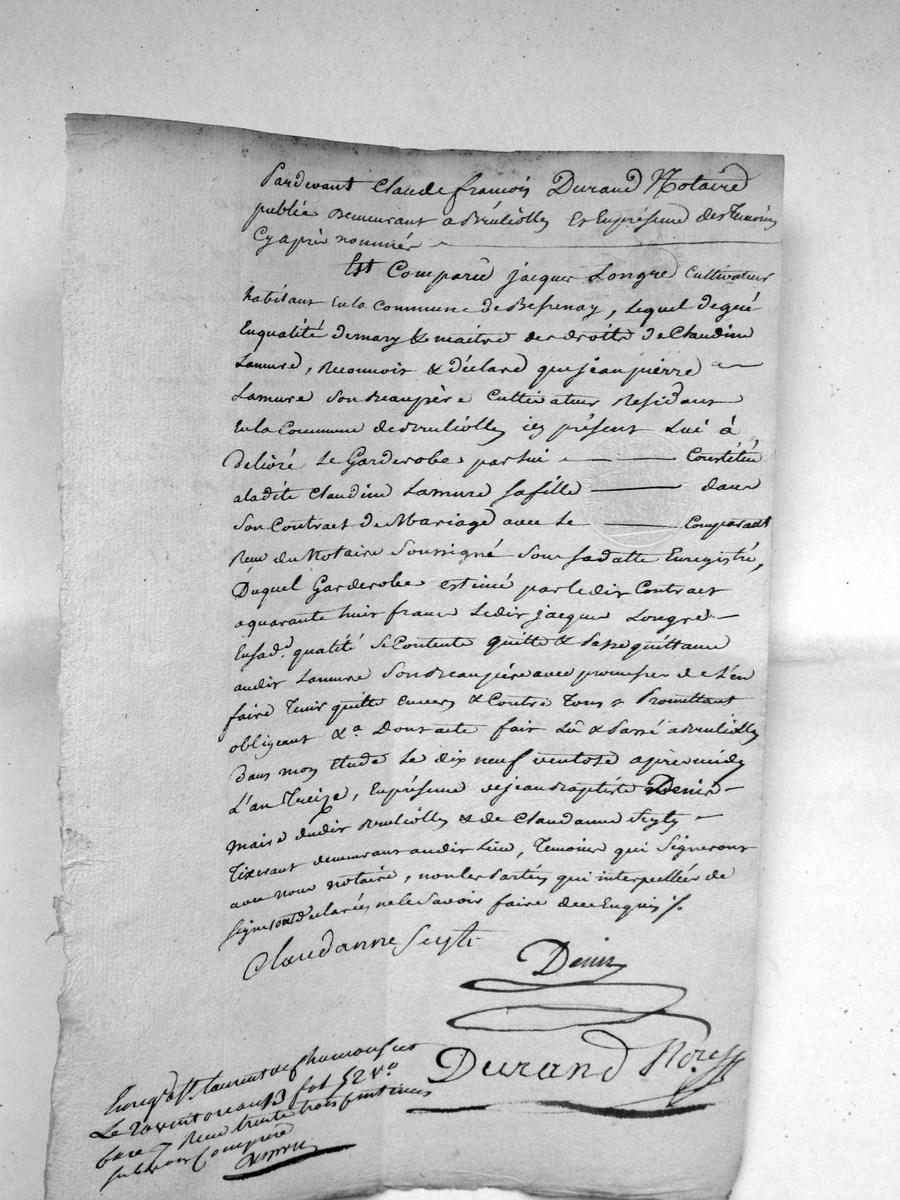 Pardevant Claude françois Durand Notaire
public demeurant a Brulliolles Et Enprésence des temoins
Cy après nommés
Est Comparu jacques Longre Cultivateur
habitant En la Commune de Bessenay, lequel degré
En qualité de mary & maitre des droits de Claudine
Lamure, reconnoit & déclare que jean pierre
Lamure Son Beaupère Cultivateur Residant
En la Commune de Brulliolles icy présent Lui à
delivré Le Garderobe par lui Constitué
a ladite Claudine Lamure Safille dans
Son Contract de Mariage avec Le Comparant
Reçu du Notaire Soussigné Sous Sadatte Enregistré,
Duquel Garderobe estimé par ledit Contract
a quarante huit francs Ledit jacques Longre
En sad.e qualité Se Contente quitte & Passe quittance
audit Lamure Son Beaupère avec promesse de L'en
faire tenir quitte Envers & Contre tous Promettant
obligeant &a Dont acte fait Lû & Passé a Brulliolles
Dans mon étude Le dix neuf ventose après midy
L'an Treize, En présence de jean Baptiste Denis
Maire dudit Brulliolles & de Claudanne Seyty
Tixerant demeurant audit Lieu, Temoins qui Signeront
avec nous notaire, non les Parties qui interpellées de
Signer ont déclarées ne le Savoir faire de ce Enquis
Claudanne Seyti
Denis
Durand Nore
Enregé a St laurent de Chamousset
Le 20 ventose an 13 fol 52 vo
Case 7 Reçu trente trois centimes
Subvon Comprise